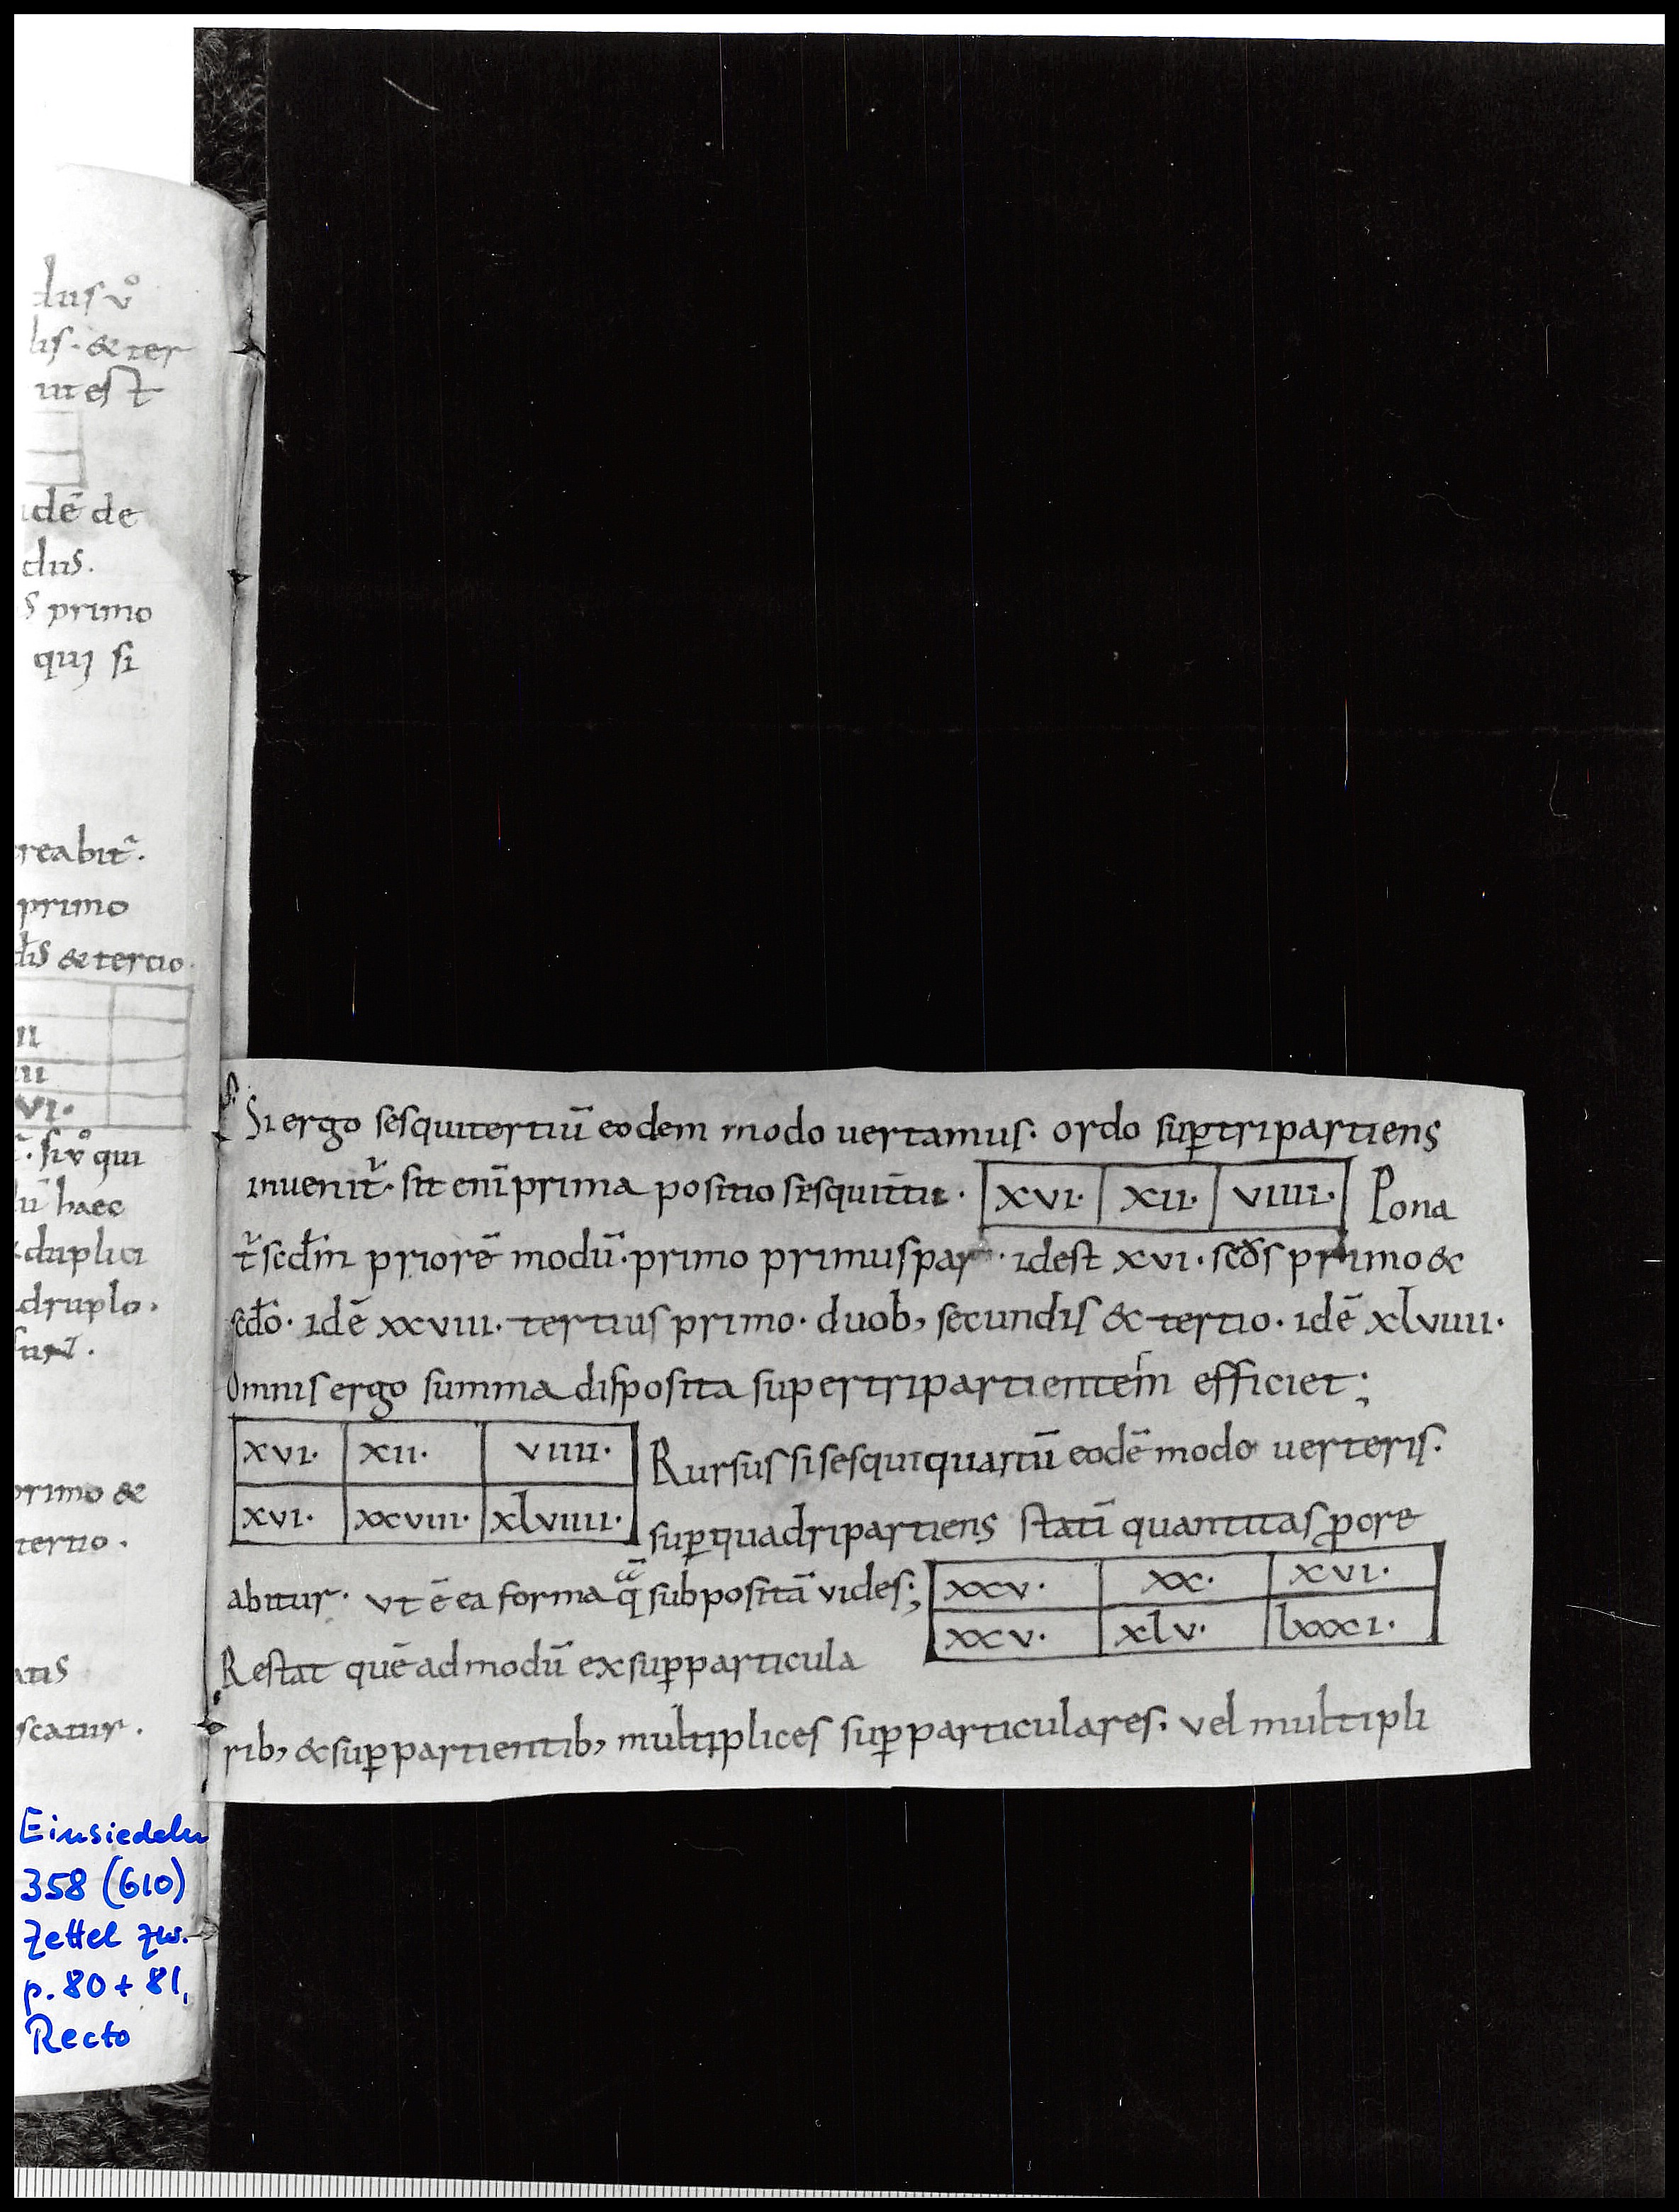 dus vͦ
lis · & ter
ui est
idē de
dus.
s primo
quı si
reabit᷑.
primo
dis & tertio.
II
III
VI.
· si vͦ qui
lū haec
duplici
druplo.
sunt.
primo &
tertio.
atis
scatur.
Si ergo sesquitertiū eodem modo uertamus. ordo suꝑtripartiens
inuenit᷑. sit enī prima positio sesquit̄tii. XVI. XII. VIIII. Pona
t᷑ scdm̄ priorē modū. primo primus par. idest XVI. scds̄ primo &
scdō. idē XXVIII. tertius primo. duob; secundis & tertio. idē XLVIIII.
Omnis ergo summa disposita supertripartientem efficiet;
XVI. XII. VIIII. Rursus si sesquiquartū eodē modo uerteris.
XVI. XXVIII. XLVIIII. suꝑquadripartiens statī quantitas ꝓcre
abitur. ut ē ea forma q̄ subpositā uides; XXV. XX. XVI.
XXV. XLV. LXXXI.
Restat quēadmodū ex suꝑparticula
rib; & suꝑpartientib; multiplices suꝑparticulares. vel multipli
Einsiedeln
358 (610)
Zettel zw.
p. 80 + 81,
Recto